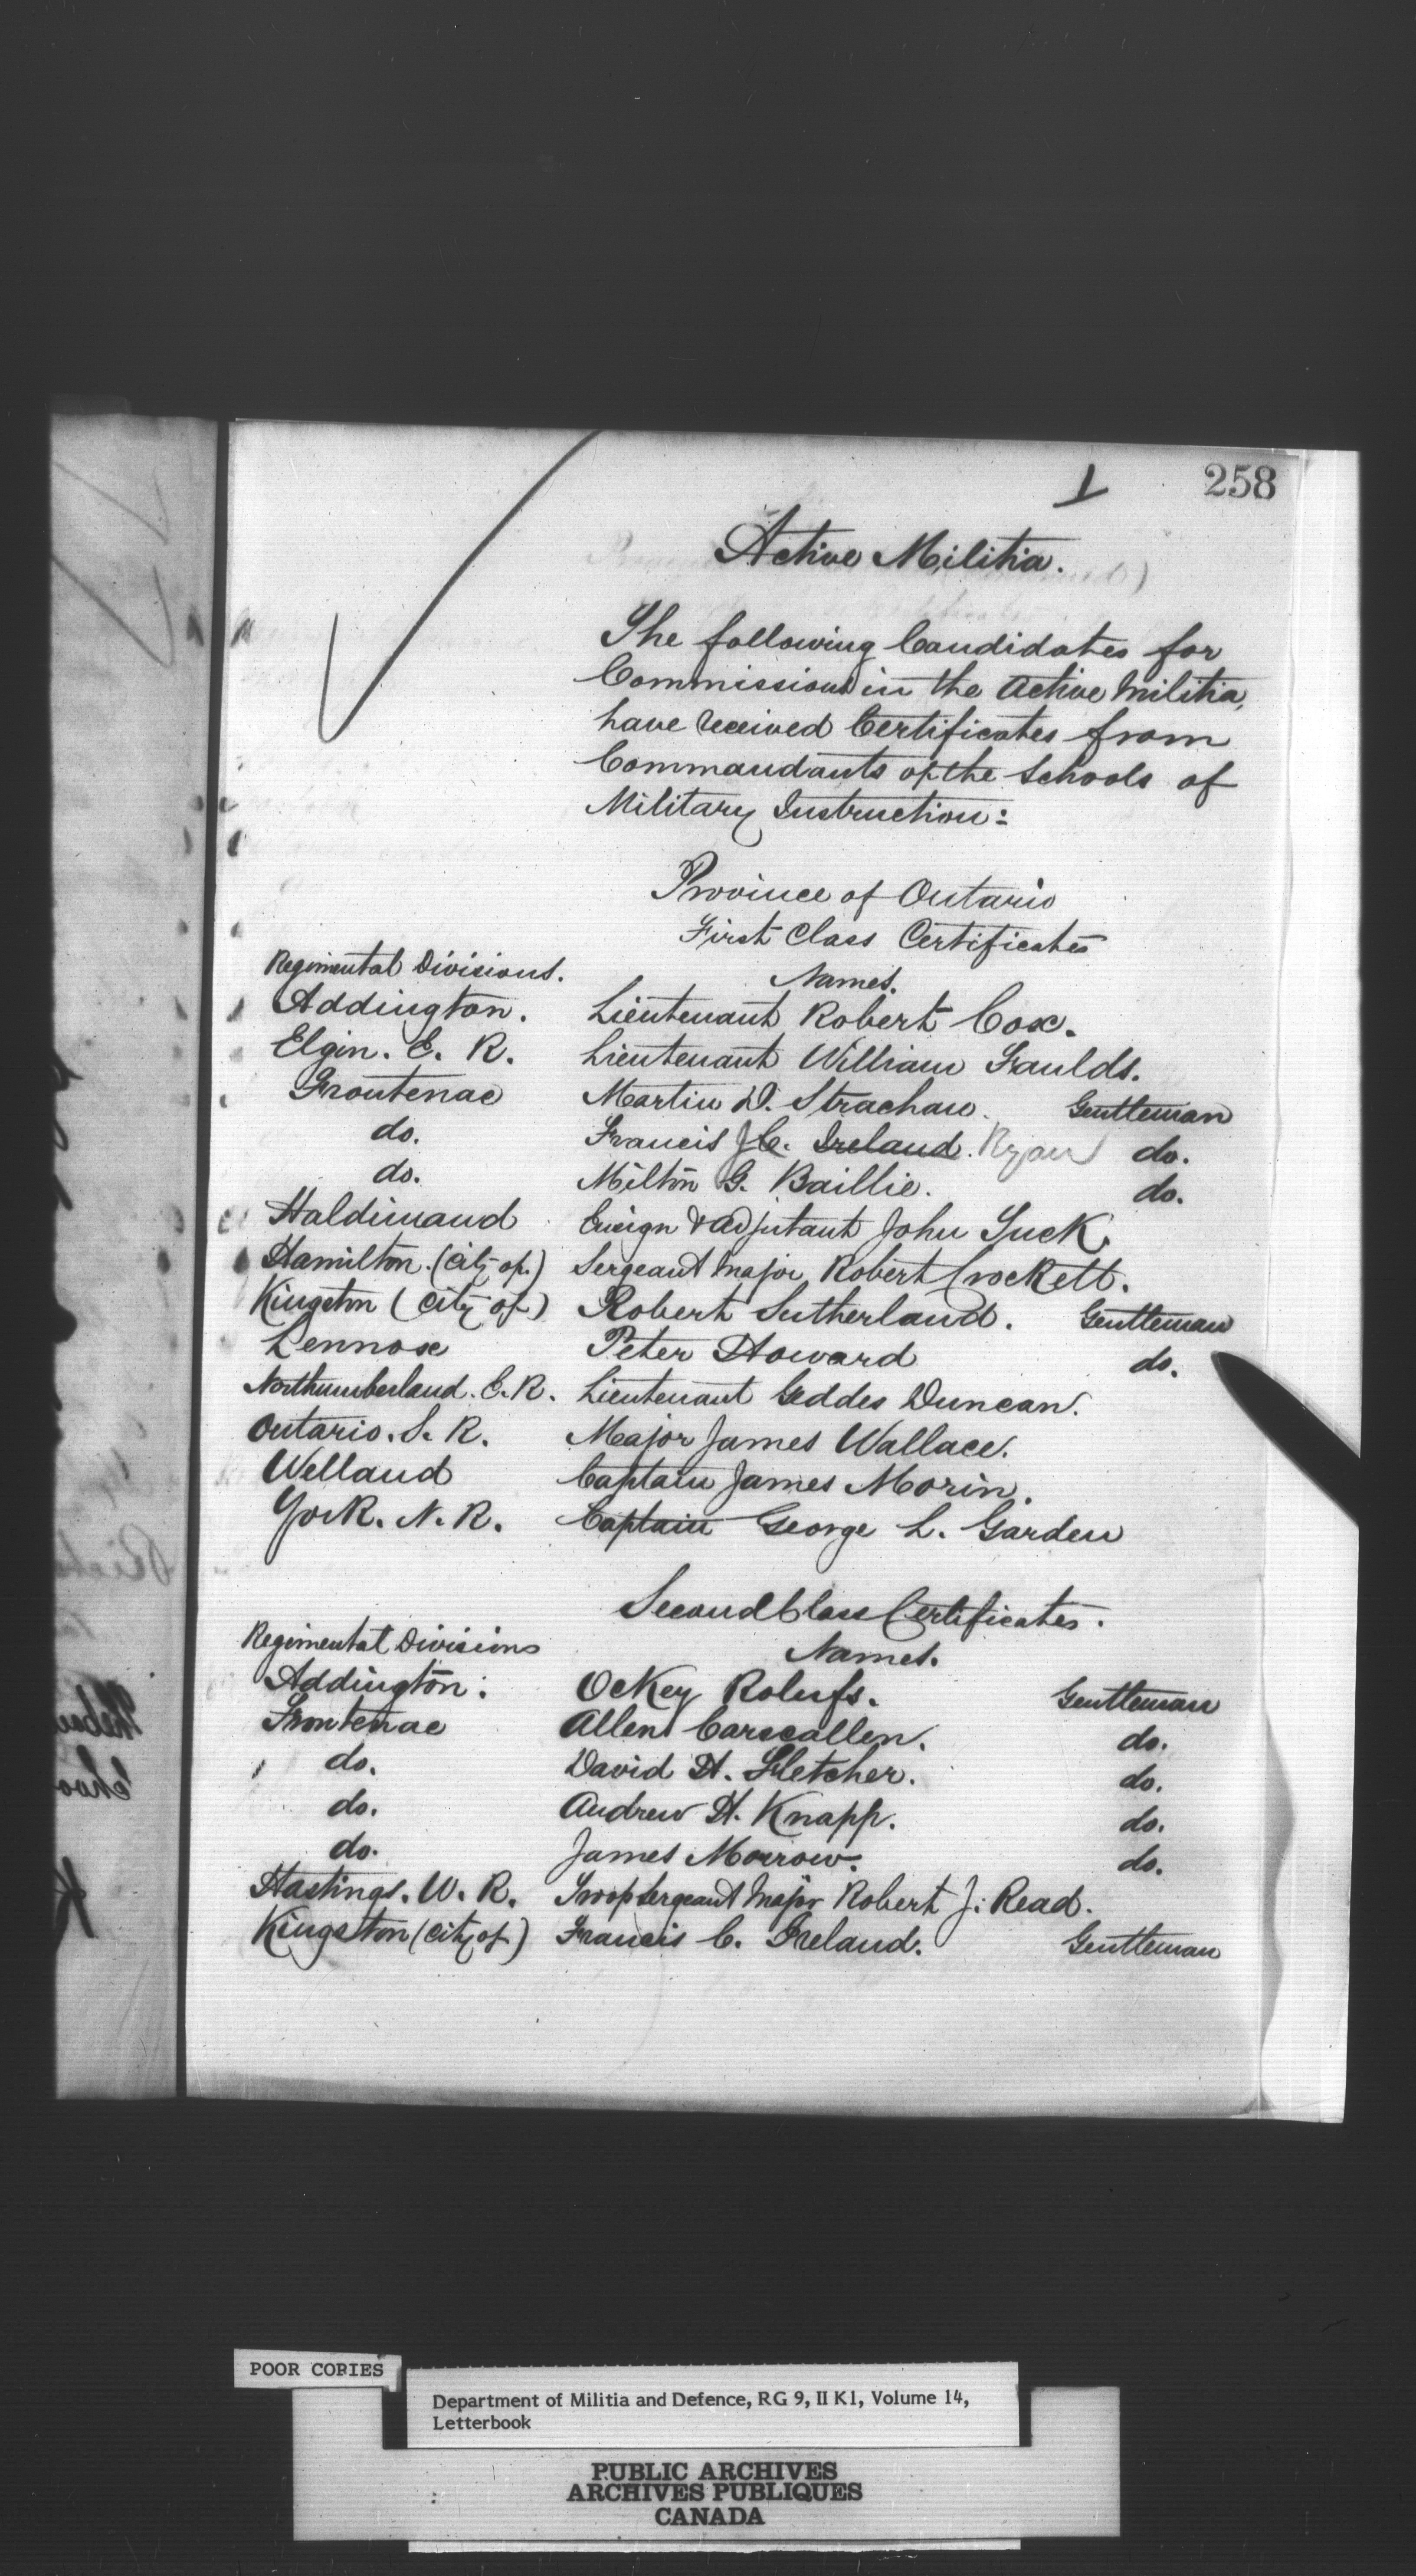 258
1
Active Militia.
The following Candidates for
Commissions in the Active Militia,
have received Certificates from
Commandants of the Schools of
Military Instruction:
Province of Ontario
First Class Certificates
Regimental Divisions. Names.
Addington. Lieutenant Robert Cox.
Elgin. E. R. Lieutenant William Faulds.
Frontenac Martin D. Strachan. Gentleman
do. Francis J. C. Ireland. Ryan do.
do. Milton G. Baillie. do.
Haldimand Ensign & Adjutant John Tuck.
Hamilton. (City of.) Sergeant Major Robert Crockett.
Kingston (City of) Robert Sutherland. Gentleman
Lennox Peter Howard do.
Northumberland. E. R. Lieutenant Geddes Duncan.
Ontario. S. R. Major James Wallace.
Welland Captain James Morin.
York. N. R. Captain George L. Garden
Second Class Certificates.
Regimental Divisions Names.
Addington. Ockey Gentleman
Frontenac Allen Carscallen. do.
do. David H. Fletcher. do.
do. Andrew H. Knapp. do.
do. James Morrow. do.
Hastings. W. R. Troop Sergeant Major Robert J. Read.
Kingston (City of) Francis C. Ireland. Gentleman
POOR COPIES
Department of Militia and Defence, RG 9, II K1, Volume 14,
Letterbook
PUBLIC ARCHIVES
ARCHIVES PUBLIQUES
CANADA